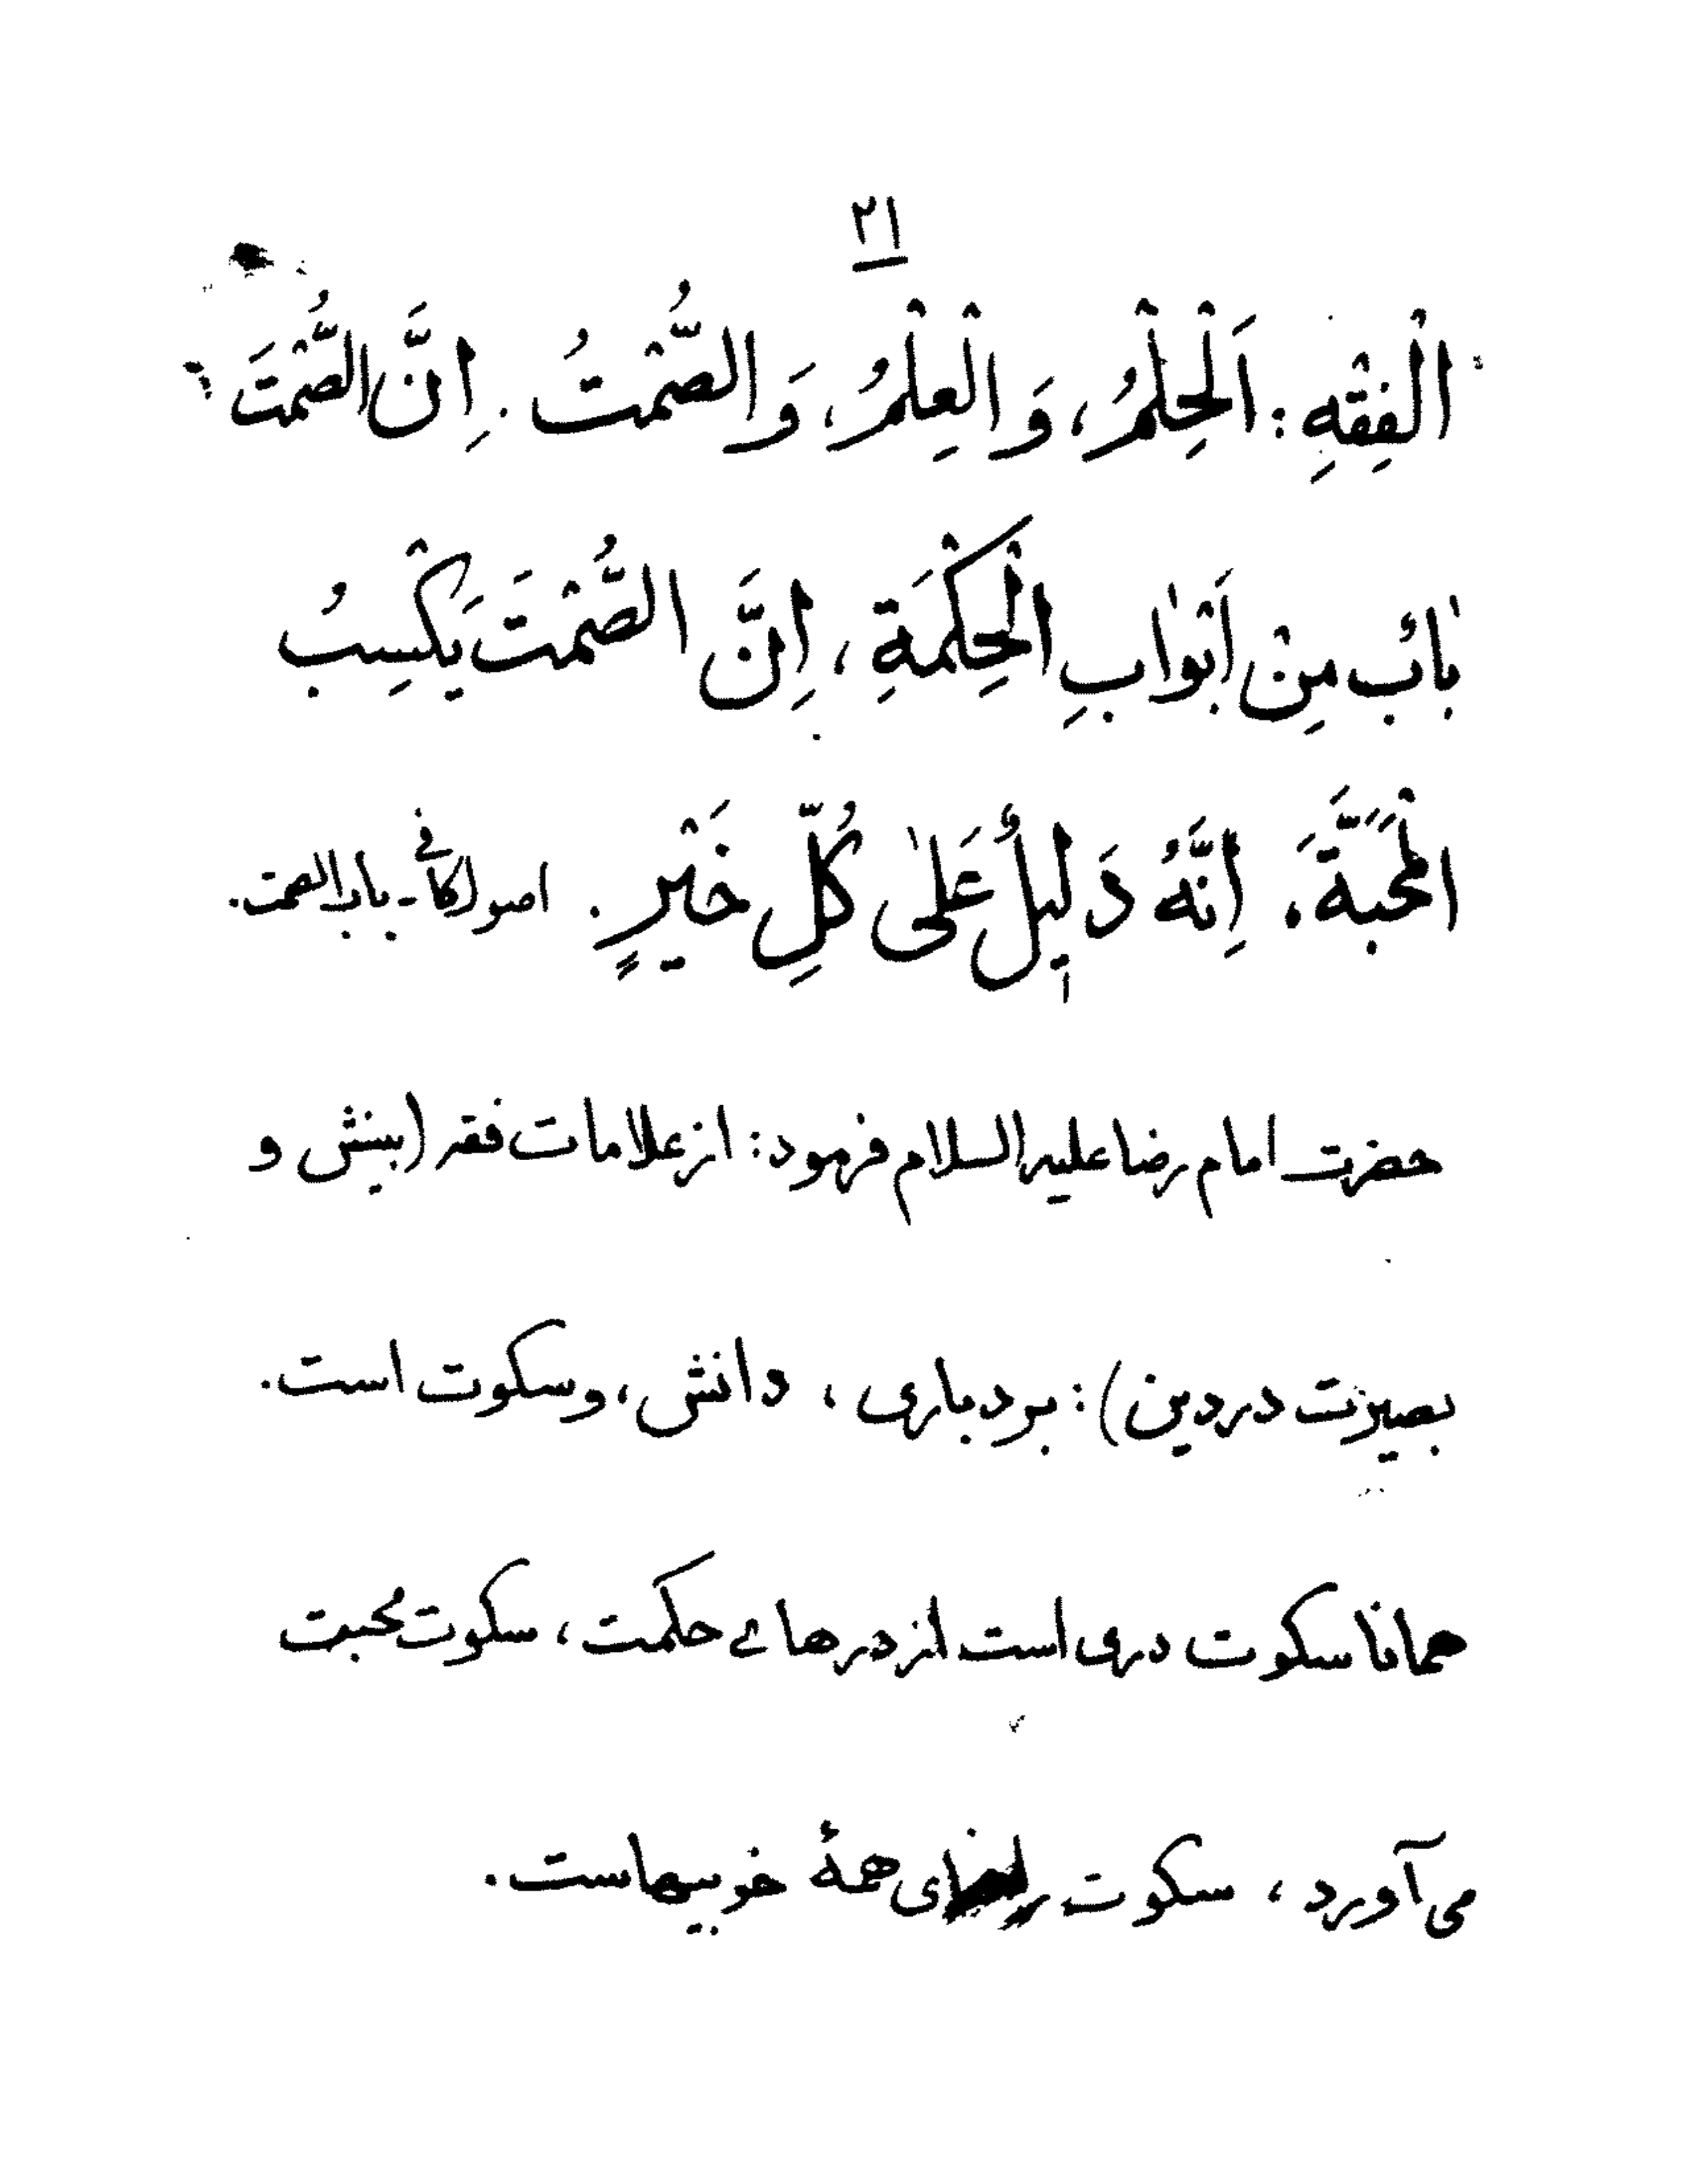 ٢١
الْفِقْهِ : اَلْحِلْمُ، وَ الْعِلْمُ، وَ الصَّمْتُ . اِنَّ الصَّمْتَ
بٰابٌ مِنْ اَبْوٰابِ الْحِكْمَةِ ، اِنَّ الصَّمْتَ يَكْسِبُ
الْمَحَبَّةَ، اِنَّهُ دَلیٖلٌ عَلیٰ كُلِّ خَيْرٍ . اصول کافی - باب الصمت.
حضرت امام رضا علیه السلام فرمود: از علامات فقه (بینش و
بصیرت در دین): بردباری ، دانش، و سکوت است.
همانا سکوت دری است از درهای حکمت، سکوت محبت
می آورد ، سکوت همهٔ خوبیهاست.